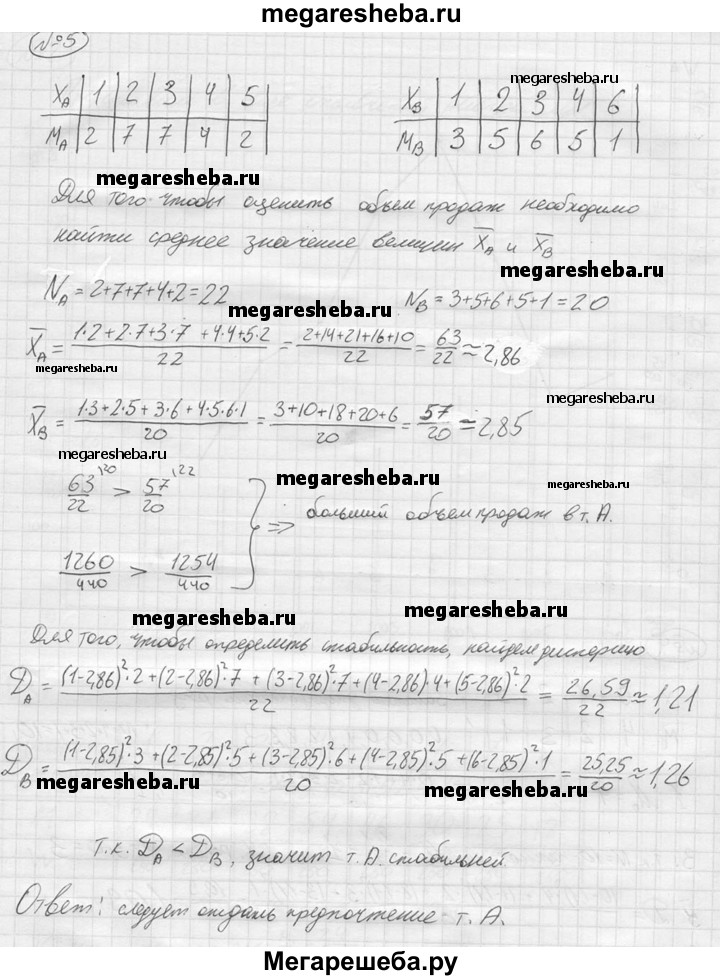 megaresheba.ru
№5
X_A | 1 | 2 | 3 | 4 | 5
M_A | 2 | 7 | 7 | 4 | 2
megaresheba.ru
X_B | 1 | 2 | 3 | 4 | 6
M_B | 3 | 5 | 6 | 5 | 1
megaresheba.ru
megaresheba.ru
Для того чтобы оценить объем продаж необходимо
найти среднее значение величин X̅_A и X̅_B
megaresheba.ru
N_A = 2+7+7+4+2=22
N_B = 3+5+6+5+1=20
megaresheba.ru
X̅_A = (1·2+2·7+3·7+4·4+5·2)/22 = (2+14+21+16+10)/22 = 63/22 ≈ 2,86
megaresheba.ru
megaresheba.ru
X̅_B = (1·3+2·5+3·6+4·5·6·1)/20 = (3+10+18+20+6)/20 = 57/20 = 2,85
megaresheba.ru
megaresheba.ru
megaresheba.ru
63/22 \20 > 57/20 \22
1260/440 > 1254/440
} => больший объем продаж в т. А.
megaresheba.ru
megaresheba.ru
Для того, чтобы определить стабильность, найдем дисперсию
D_A = ((1-2,86)²·2+(2-2,86)²·7+(3-2,86)²·7+(4-2,86)·4+(5-2,86)²·2)/22 = 26,59/22 ≈ 1,21
D_B = ((1-2,85)²·3+(2-2,85)²·5+(3-2,85)²·6+(4-2,85)²·5+(6-2,85)²·1)/20 = 25,25/20 ≈ 1,26
megaresheba.ru
megaresheba.ru
т.к. D_A < D_B, значит т. А. стабильней
Ответ: следует отдать предпочтение т. А.
Мегарешеба.ру